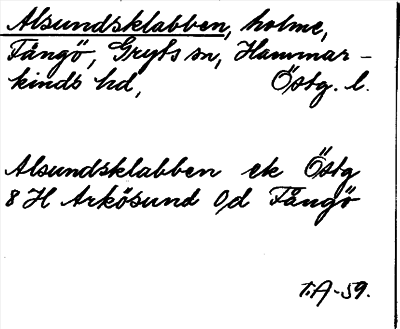 Alsundsklabben, holme,
Fångö, Gryts sn, Hammar-
kinds hd, Östg. l.
Alsundsklabben ek Östg
8 H Arkösund O/d Fångö
T.A-59.